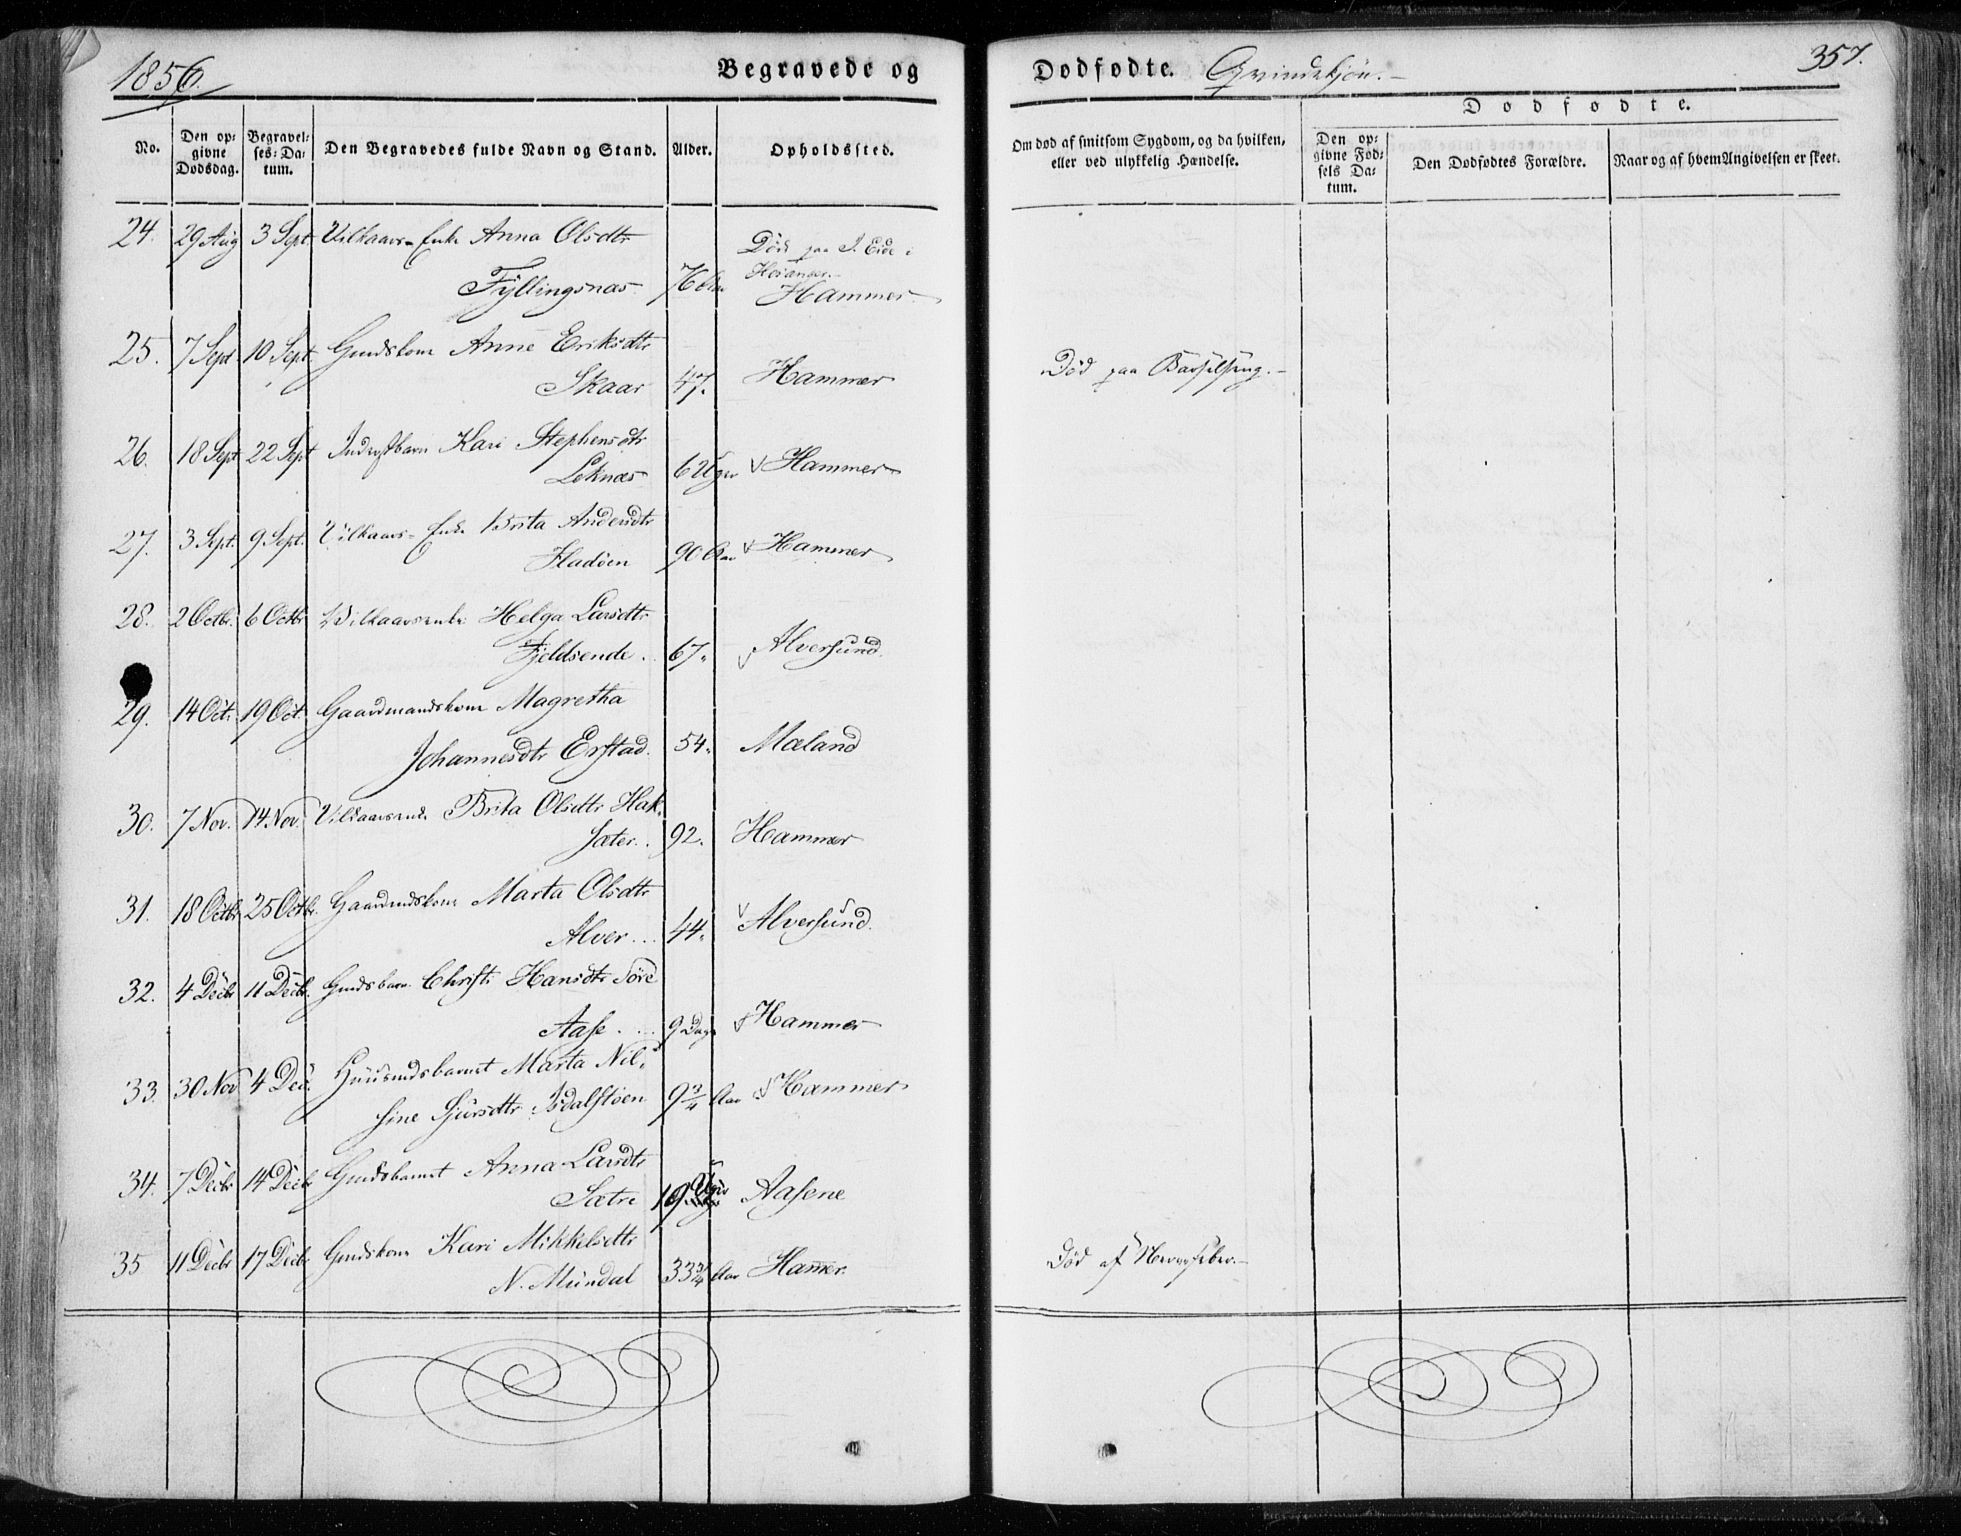 1856.
Begravede og
Dødfødte. Qvindekjön.
357.
No.
Den opgivne Dødsdag.
Begravelses-Datum.
Den Begravedes fulde Navn og Stand.
Alder.
Opholdssted.
Om død af smitsom Sygdom, og da hvilken, eller ved ulykkelig Hændelse.
Dødfødte.
Den opgivne Fødsels Datum.
Den Dødfødtes Forældre.
Naar og af hvem Angivelsen er skeet.
24. 29 Aug 3 Sept. Vilkaars-Enke Anna Olsdtr
Død paa Eide i
Hosanger.
Fyllingsnæs 76 Aar Hammer
25. 7 Sept 10 Sept. Gmdskone Anne Eriksdtr
Skaar 47. Hammer Død paa Barselseng.
26. 18 Sept 22 Sept Kari Stephensdtr
Leknæs 6 Uger Hammer
27. 3 Sept. 9 Sept. Vilkaars-Enke Brita Andersdtr
Fladöen 90 Aar Hammer
28. 2 Octbr. 6 Octbr Vilkaarsenke Helga Larsdtr
Fjeldsende. 67. Alversund.
29. 14 Oct. 19 Oct. Gaardmandskone Magretha
Johannesdtr Erstad. 54. Mæland
30. 7 Nov. 14 Nov. Vilkaarsenke Brita Olsdtr Hak-
sæter. 92. Hammer
31. 18 Octbr 25 Octbr. Gaardmdskone Marta Olsdtr
Alver... 44. Alversund.
32. 4 Decbr 11 Decbr. Gmdsbarn Christi Hansdtr Söre
Aase.... 9 Dage Hammer
33. 30 Nov 4 Dec. Huusmdsbarnet Marta Nil-
sine Sjursdtr Isdalstöen 9 3/4 Aar Hammer
34. 7 Decbr 14 Decbr Gmdsbarnet Anna Larsdtr
Sætre 19 Uger Aasene
35 11 Decbr 17 Decbr Gmdskone Kari Mikkelsdtr
N. Mundal 33 3/4 Aar Hamer. Død af Nervefeber.